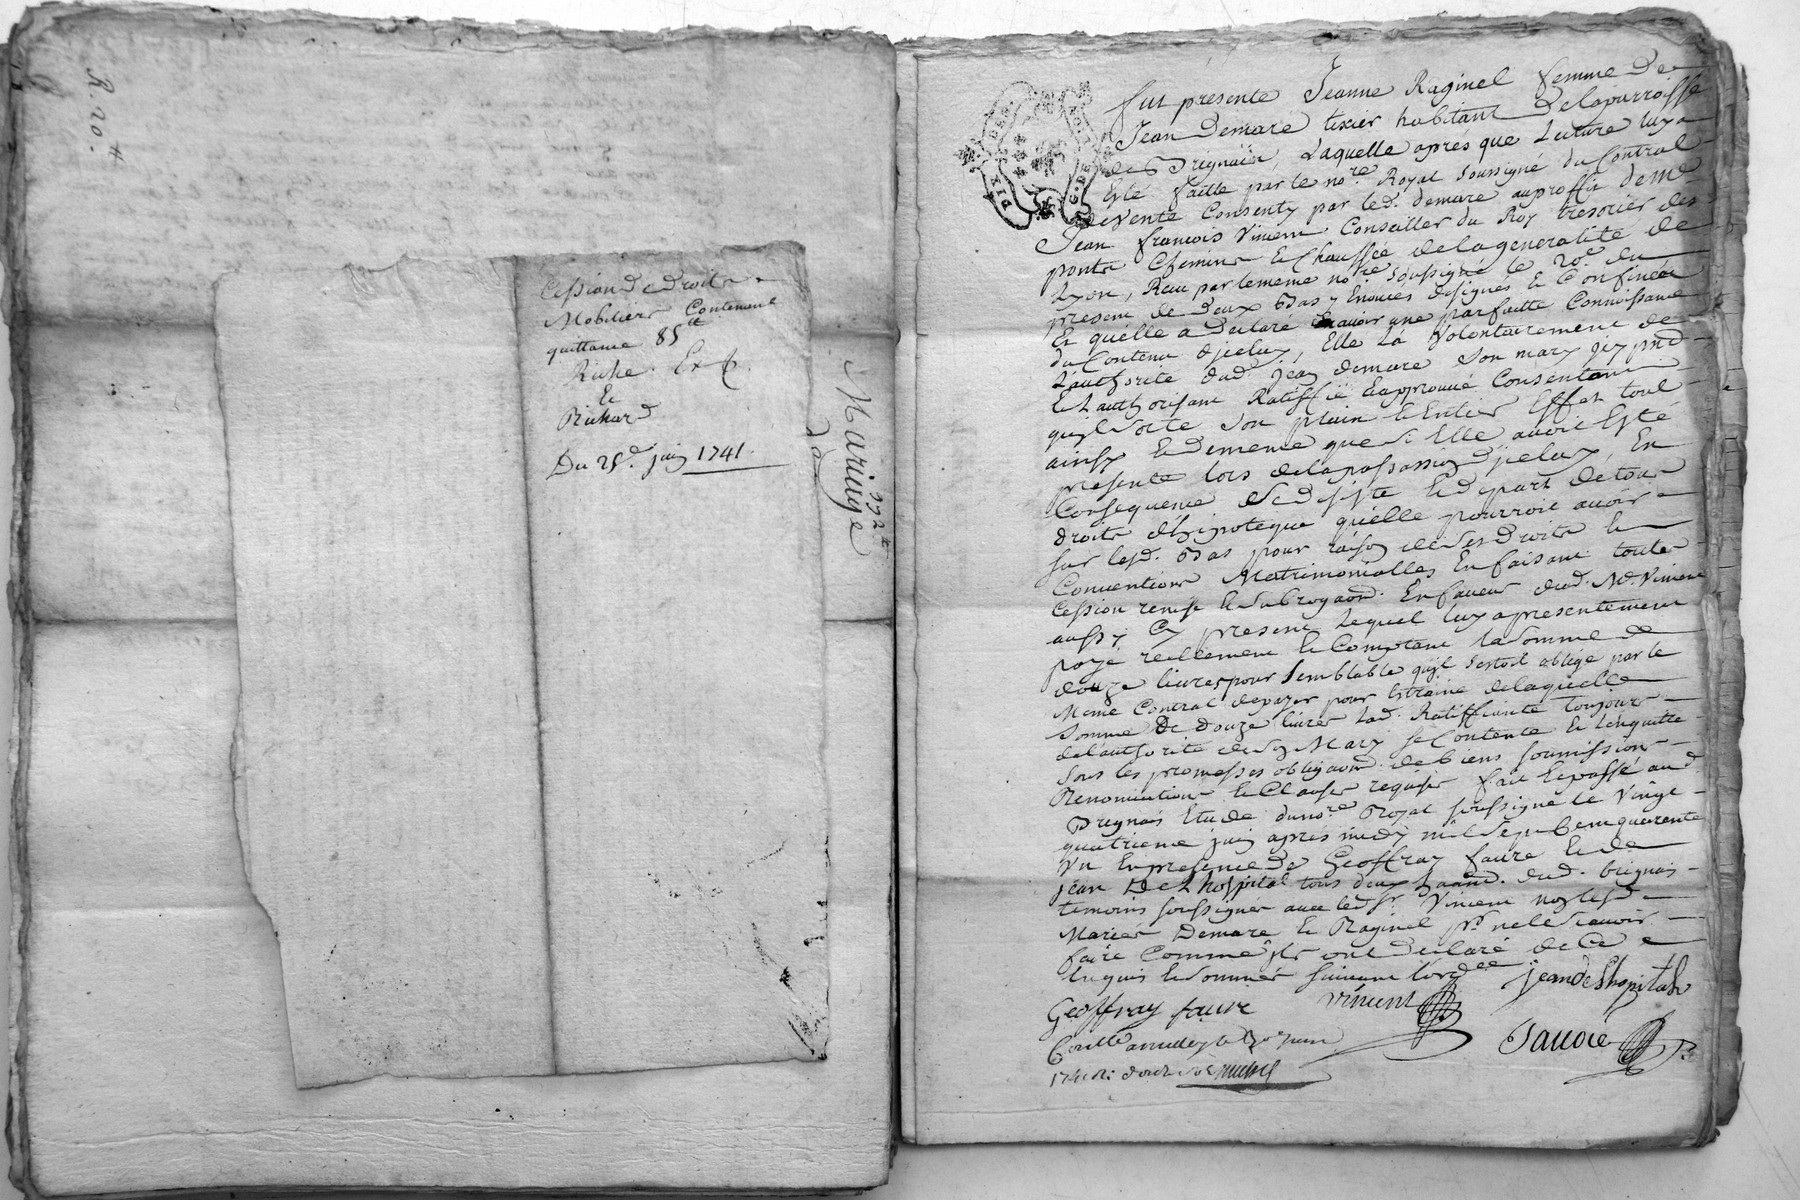 R. 20. #
Cession de droits
Mobiliers Contenant
quittance 85ᵗᵗ
Riche. Ex
Et
Richard
Du 25ᵉ. juin 1741.
Mariage
292ᵗᵗ
fut presente Jeanne Raginel femme de
Jean Demare texier habitant de la parroisse
de Brignais, Laquelle aprés que Lecture luy a
Esté faitte par le noʳᵉ Royal soussigné du Contrat
de Vente Consenty par led. demare au proffit de Mᵉ
Jean francois Vincent Conseiller du Roy tresorier des
ponts Chemins et Chaussée de la generalité de
Lyon, Recu par le meme noʳᵉ soussigné le 20ᵉ du
present de deux Bas y Enoncés designés et Confinés
Et qu'elle a declaré En avoir une parfaitte Connoissance
du Contenu d'jceluy, Elle La Volontairement de
L'authorité dud. Jean demare son mary jcy pnt
et L'authorisant Ratiffié et approuvé Consentant
qu'jl sorte son plain et Entier Effet tout
ainsy et de meme que si Elle avoit Esté
presente lors de la passation d'jceluy, En
Consequence se desiste et depart de tous
droits d'hipoteque qu'elle pourroit avoir
sur lesd. Bas pour raison de ses droits et
Conventions Matrimonialles En faisant toutes
Cession remise et subrogaon. En faveur dud. Mᵉ. Vincent
aussy Cy present Lequel luy a presentement
payé reellement et Comptant la somme de
douze livres pour semblable qu'jl s'estoit obligé par le
Meme Contrat de payer pour Estraine de laquelle
somme de douze livres Lad. Ratiffiante toujours
de l'authorité de sd Mary se Contente et L'en quitte
sous les promesses obligaons. de biens soumissions
Renonciations et Clauses requises fait et passé aud.
Brignais Etude du noʳᵉ Royal soussigné le Vingt
quatrieme juin apres midy mil sept Cent quarente
Un En presence de Geoffray faure et de
jean De L'hospital tous deux habitd. dud. brignais
temoins soussignés avec led. sʳ. Vincent non lesd.
Mariés Demare et Raginel pʳ. ne le scavoir
faire Comme jls ont declaré de Ce
Enquis et sommés suivant l'ordᶜᵉ
Geoffray faure Vincent jean de Lhopital
Conllé a le 30 juin
1741 R: douze sols